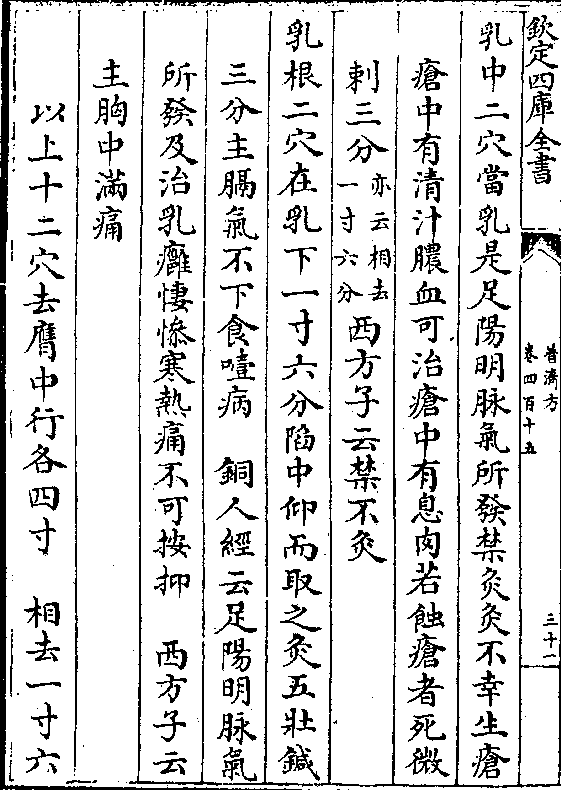 欽定四庫全書
普濟方
卷四百十五
三十二
乳中二穴當乳是足陽明脉氣所發禁灸灸不幸生瘡
瘡中有清汁膿血可治瘡中有息肉若蝕瘡者死微
刺三分亦云相去一寸六分西方子云禁不灸
乳根二穴在乳下一寸六分陷中仰而取之灸五壯鍼
三分主膈氣不下食噎病　銅人經云足陽明脉氣
所發及治乳癰悽慘寒熱痛不可按抑　西方子云
主胸中滿痛
以上十二穴去膺中行各四寸　相去一寸六